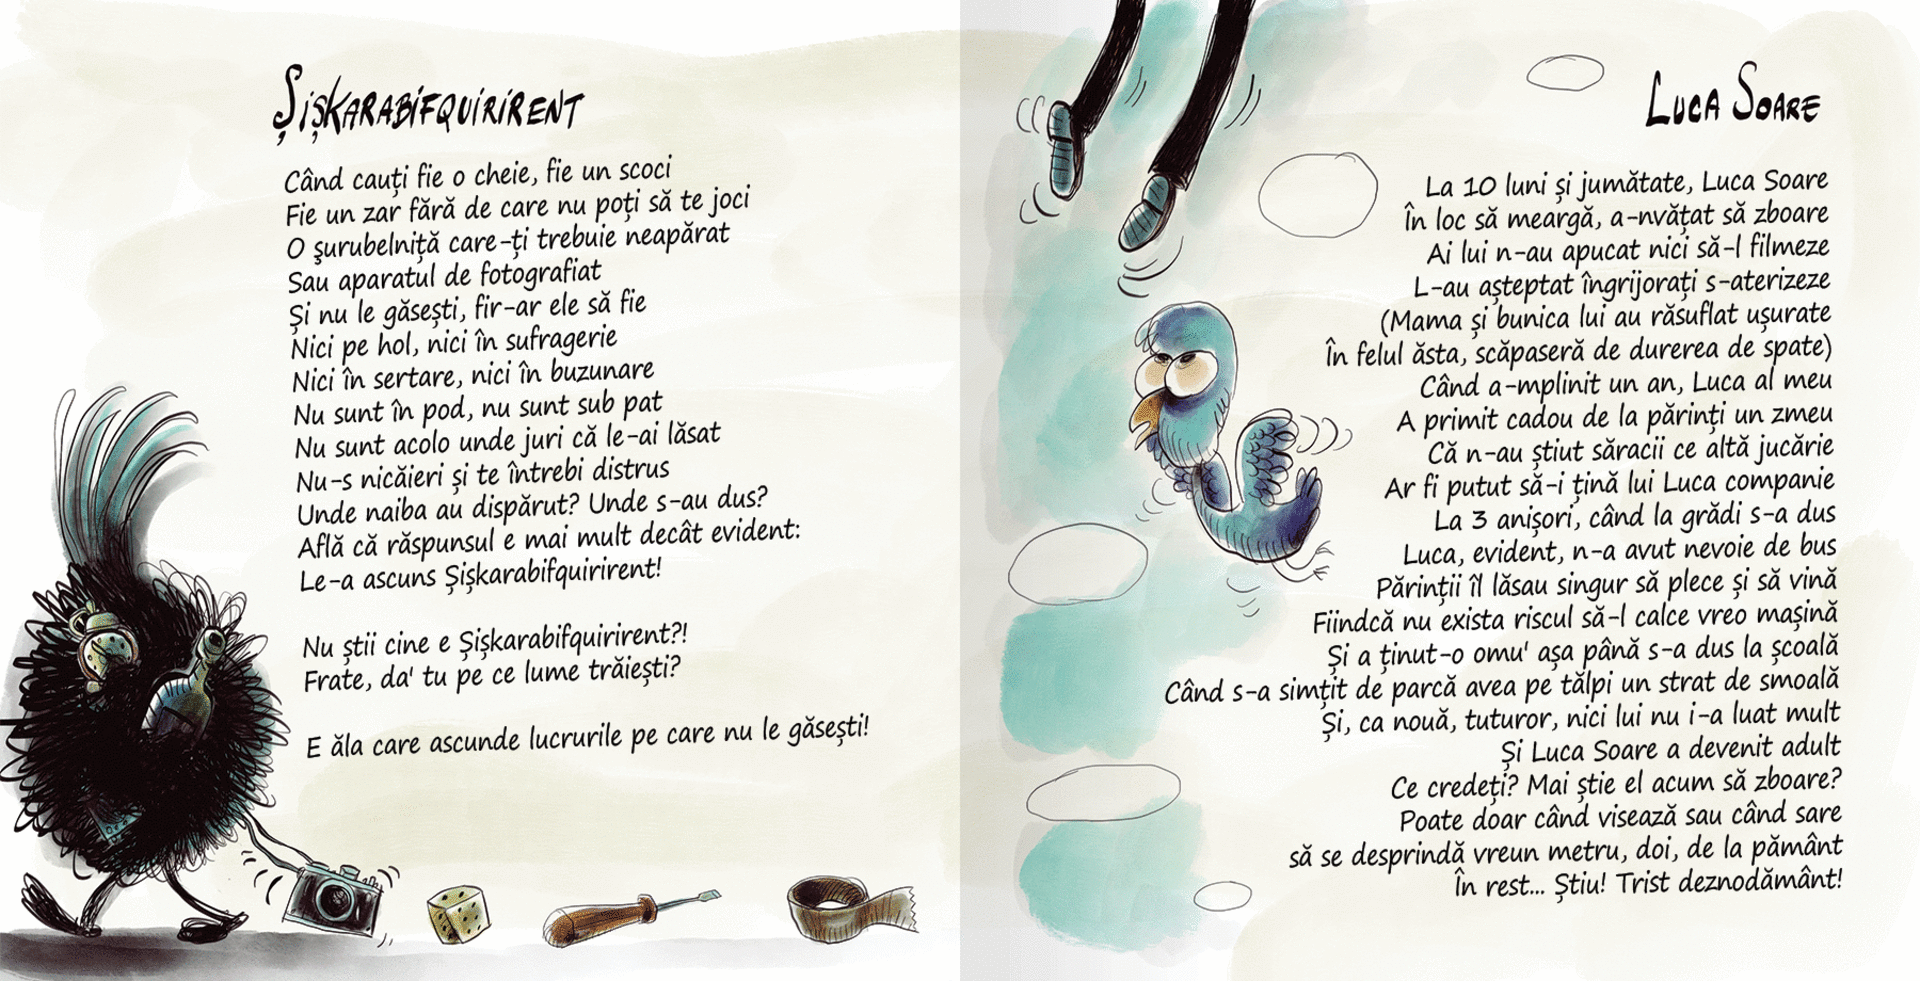 ȘIȘKARABIFQUIRIRENT
Când cauți fie o cheie, fie un scoci
Fie un zar fără de care nu poți să te joci
O șurubelniță care-ți trebuie neapărat
Sau aparatul de fotografiat
Și nu le găsești, fir-ar ele să fie
Nici pe hol, nici în sufragerie
Nici în sertare, nici în buzunare
Nu sunt în pod, nu sunt sub pat
Nu sunt acolo unde juri că le-ai lăsat
Nu-s nicăieri și te întrebi distrus
Unde naiba au dispărut? Unde s-au dus?
Află că răspunsul e mai mult decât evident:
Le-a ascuns Șișkarabifquirirent!
Nu știi cine e Șișkarabifquirirent?!
Frate, da' tu pe ce lume trăiești?
E ăla care ascunde lucrurile pe care nu le găsești!
LUCA SOARE
La 10 luni și jumătate, Luca Soare
În loc să meargă, a-nvățat să zboare
Ai lui n-au apucat nici să-l filmeze
L-au așteptat îngrijorați s-aterizeze
(Mama și bunica lui au răsuflat ușurate
În felul ăsta, scăpaseră de durerea de spate)
Când a-mplinit un an, Luca al meu
A primit cadou de la părinți un zmeu
Că n-au știut săracii ce altă jucărie
Ar fi putut să-i țină lui Luca companie
La 3 anișori, când la grădi s-a dus
Luca, evident, n-a avut nevoie de bus
Părinții îl lăsau singur să plece și să vină
Fiindcă nu exista riscul să-l calce vreo mașină
Și a ținut-o omu' așa până s-a dus la școală
Când s-a simțit de parcă avea pe tălpi un strat de smoală
Și, ca nouă, tuturor, nici lui nu i-a luat mult
Și Luca Soare a devenit adult
Ce credeți? Mai știe el acum să zboare?
Poate doar când visează sau când sare
să se desprindă vreun metru, doi, de la pământ
În rest... Știu! Trist deznodământ!